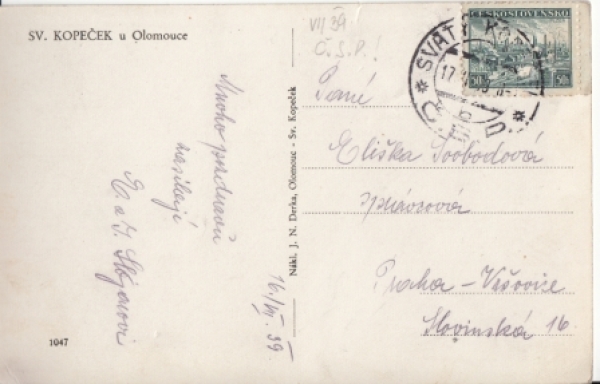 SV. KOPEČEK u Olomouce
VII 39
Č.S.P.!
ČESKOSLOVENSKO
SVATÝ KOP
17
Mnoho pozdravů
zasílají
16./VII. 39.
1047
Nákl. J. N. Derka, Olomouc - Sv. Kopeček
Paní
Eliška Svobodová
Praha - Vršovice
Slovinská 16